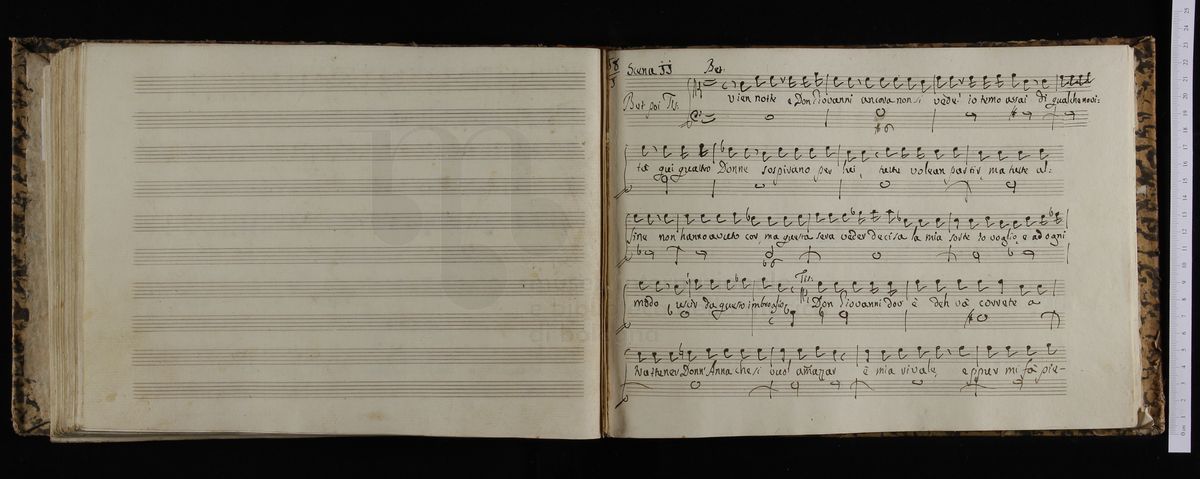 58
Scena 11 Bet:
Bet poi Tis:
Vien notte e Don Giovanni ancora non si vede! io temo assai di qualche novi:
tà qui quattro Donne sospirano per lui, tutte volean partir, ma tutte al:
fine non hanno avuto cor, ma questa sera veder decisa la mia sorte io voglio, e ad ogni
Tis:
modo uscir da questo imbroglio Don Giovanni dov' è deh và correte a
trattener Donn' Anna che si vuol amazzar è mia rivale, eppur mi fà pie-